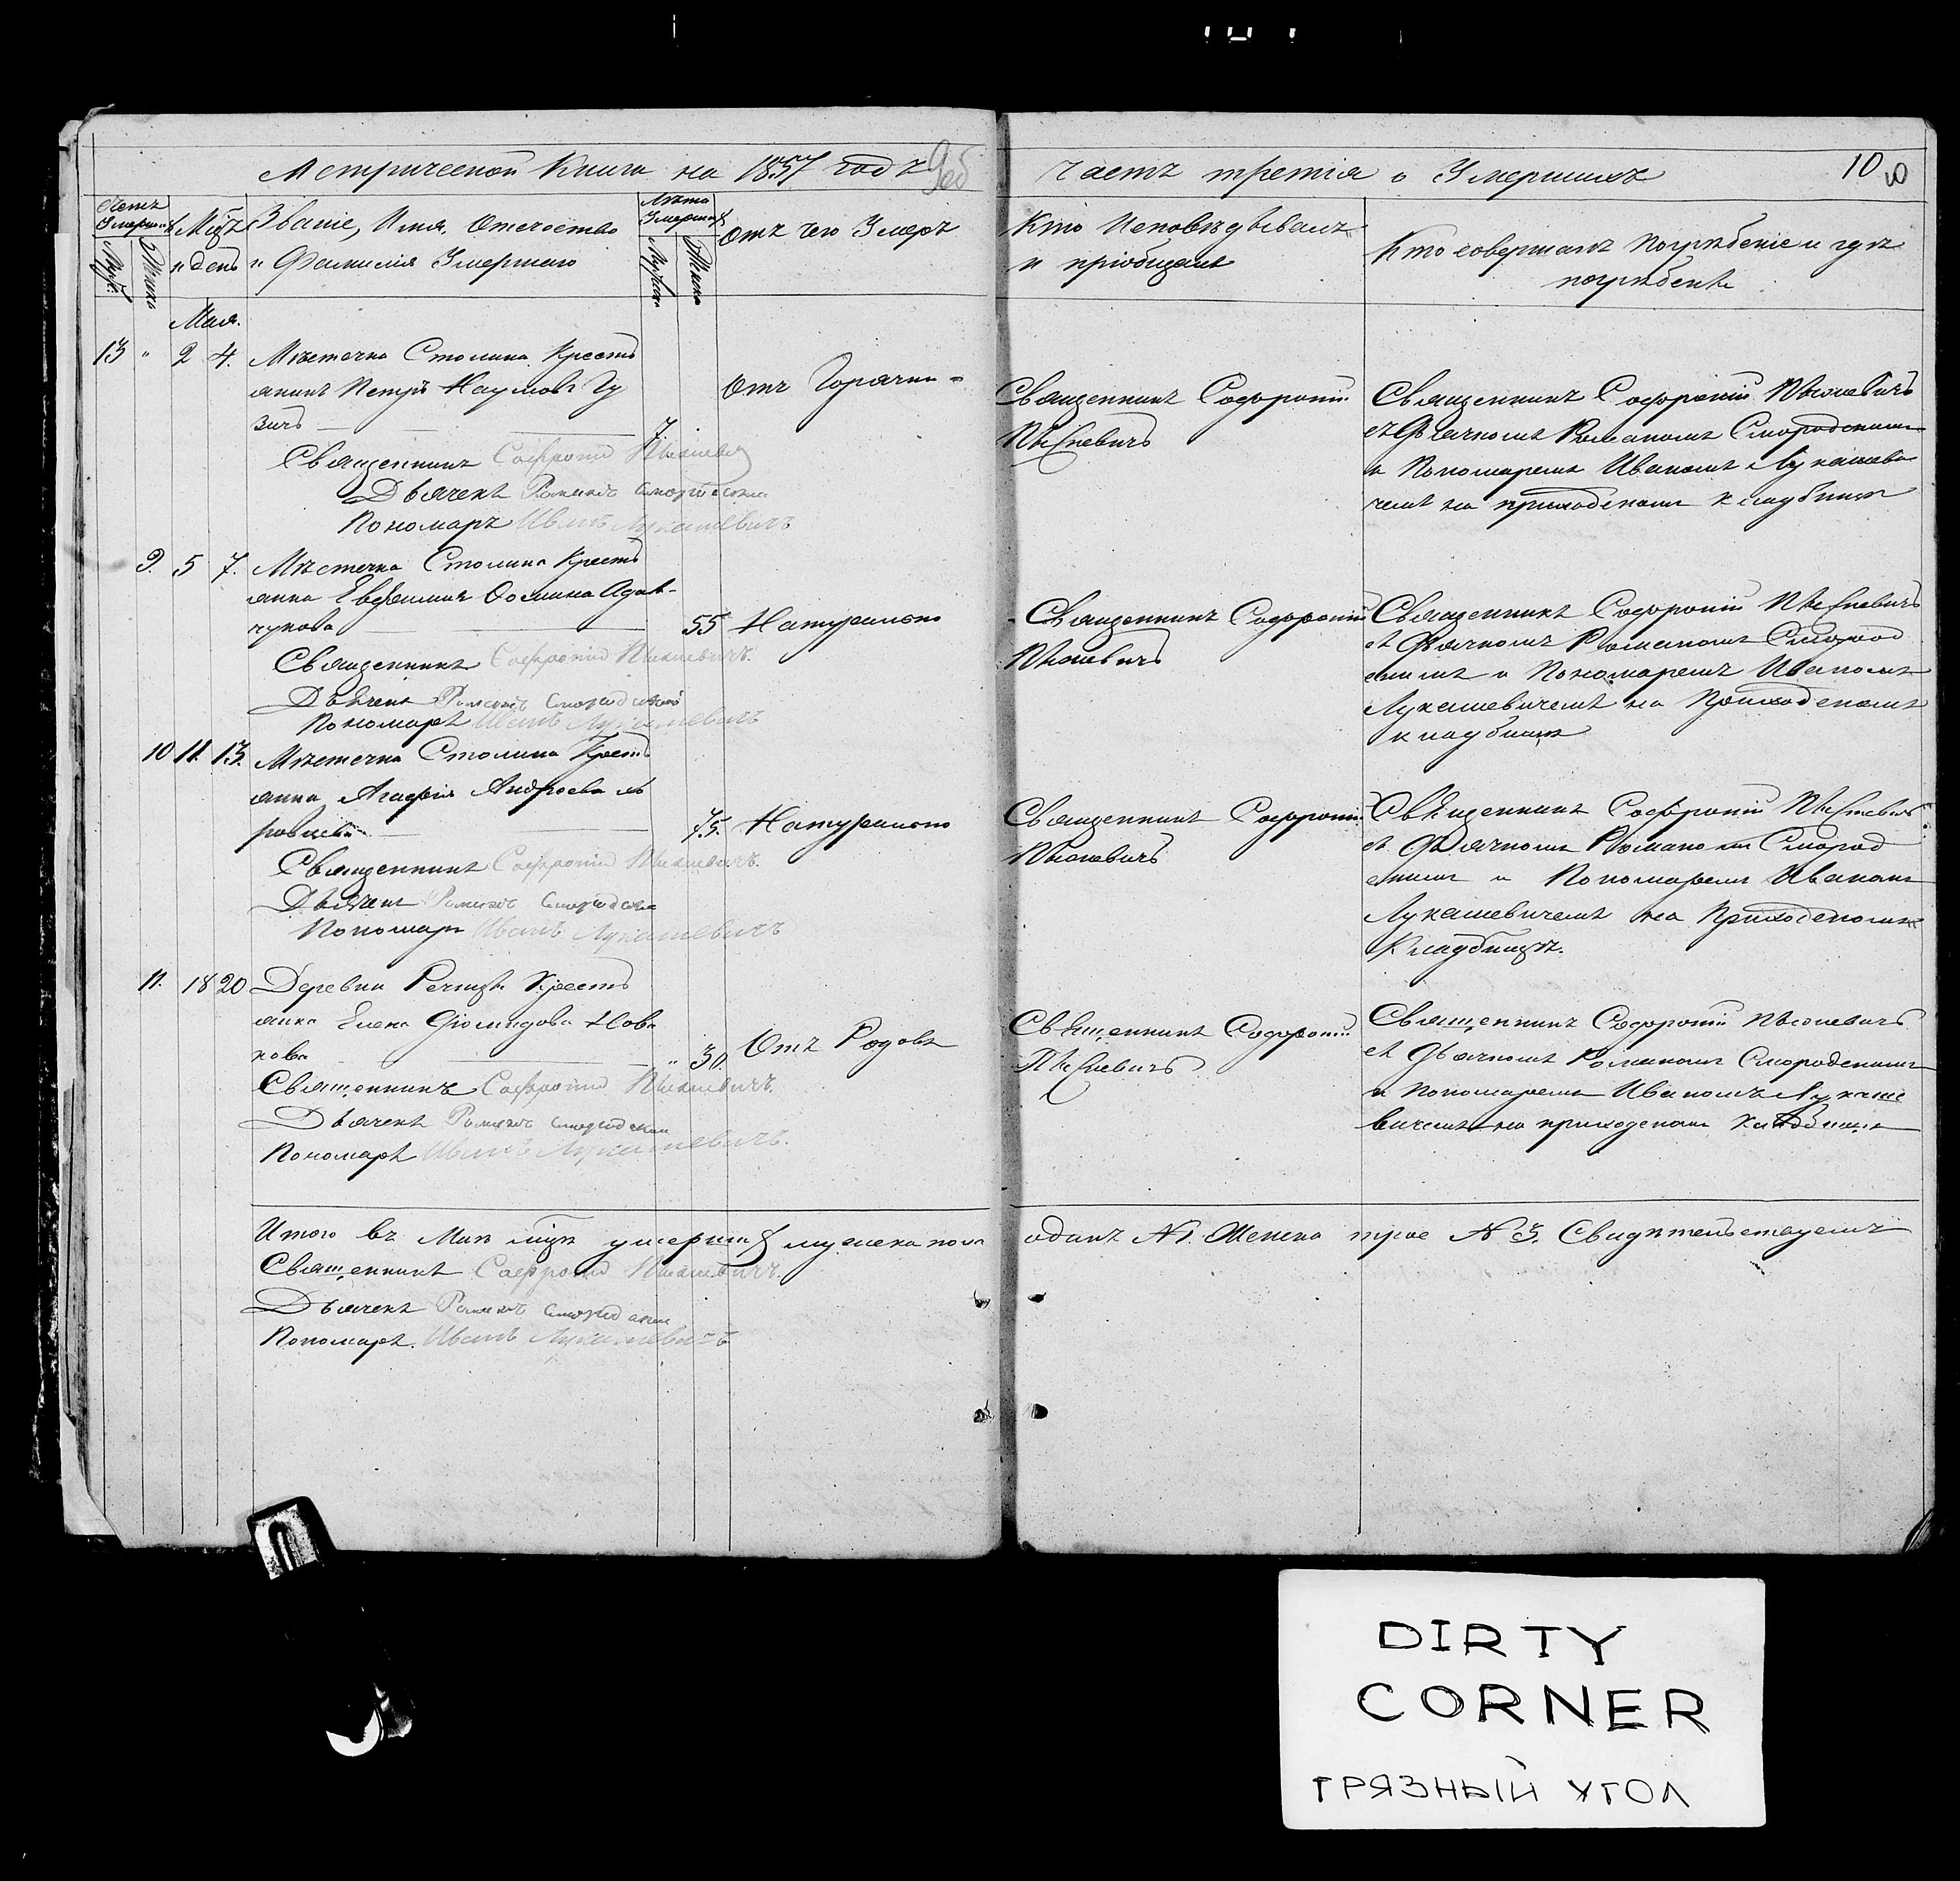 Метрической Книги на 1857 годъ
часть третія о Умершихъ
10
Счетъ Умершихъ
Мужс.
Женска
Мѣсяцъ и день
Званіе, Имя, Отчество
и Фамилія Умершаго
Лѣта Умершаго
Мужска
Женска
Отъ чего Умеръ
Кто Исповѣдывалъ
и пріобщалъ
Кто совершалъ погребеніе и гдѣ
погребенъ
Мая.
13 " 2 4. Мѣстечка Столина Кресть
янинъ Петръ Наумовъ Гу
зичъ
7.
Отъ Горячки
Священникъ Софроній
Священникъ Софроній
съ Дьячкомъ Романомъ Смородскимъ
и Пономаремъ Иваномъ Лукашеви
чемъ на приходскомъ кладбищѣ
Священникъ Софроній
Дьячекъ Романъ Смородскій
Пономарь Иванъ Лукашевичъ
9. 5 7. Мѣстечка Столина Кресть
янка Евфимія Фомина
чукова
55 Натурально
Священникъ Софроній
Священникъ Софроній
съ Дьячкомъ Романомъ Смород
скимъ и Пономаремъ Иваномъ
Лукашевичемъ на Приходскомъ
кладбищѣ
Священникъ Софроній
Дьячекъ Романъ Смородскій
Пономарь Иванъ Лукашевичъ
10 11. 13. Мѣстечка Столина Кресть
янка Агафія Андреева
75. Натурально
Священникъ Софроній
Священникъ Софроній
съ Дьячкомъ Романомъ Смород
скимъ и Пономаремъ Иваномъ
Лукашевичемъ на Приходскомъ
Кладбищѣ.
Священникъ Софроній
Дьячекъ Романъ Смородскій
Пономарь Иванъ Лукашевичъ
11. 18 20 Деревни Речицы Кресть
янка Елена Нова
кова
" 30. Отъ Родовъ
Священникъ Софроній
Священникъ Софроній
съ Дьячкомъ Романомъ Смородскимъ
и Пономаремъ Иваномъ Лукаше
вичемъ на приходскомъ кладбищѣ
Священникъ Софроній
Дьячекъ Романъ Смородскій
Пономарь Иванъ Лукашевичъ.
Итого въ Маѣ мцѣ умершихъ мужска пола одинъ N 1. Женска трое N 3. Свидѣтельствуемъ
Священникъ Софроній
Дьячекъ Романъ Смородскій
Пономарь. Иванъ Лукашевичъ
DIRTY
CORNER
ГРЯЗНЫЙ УГОЛ